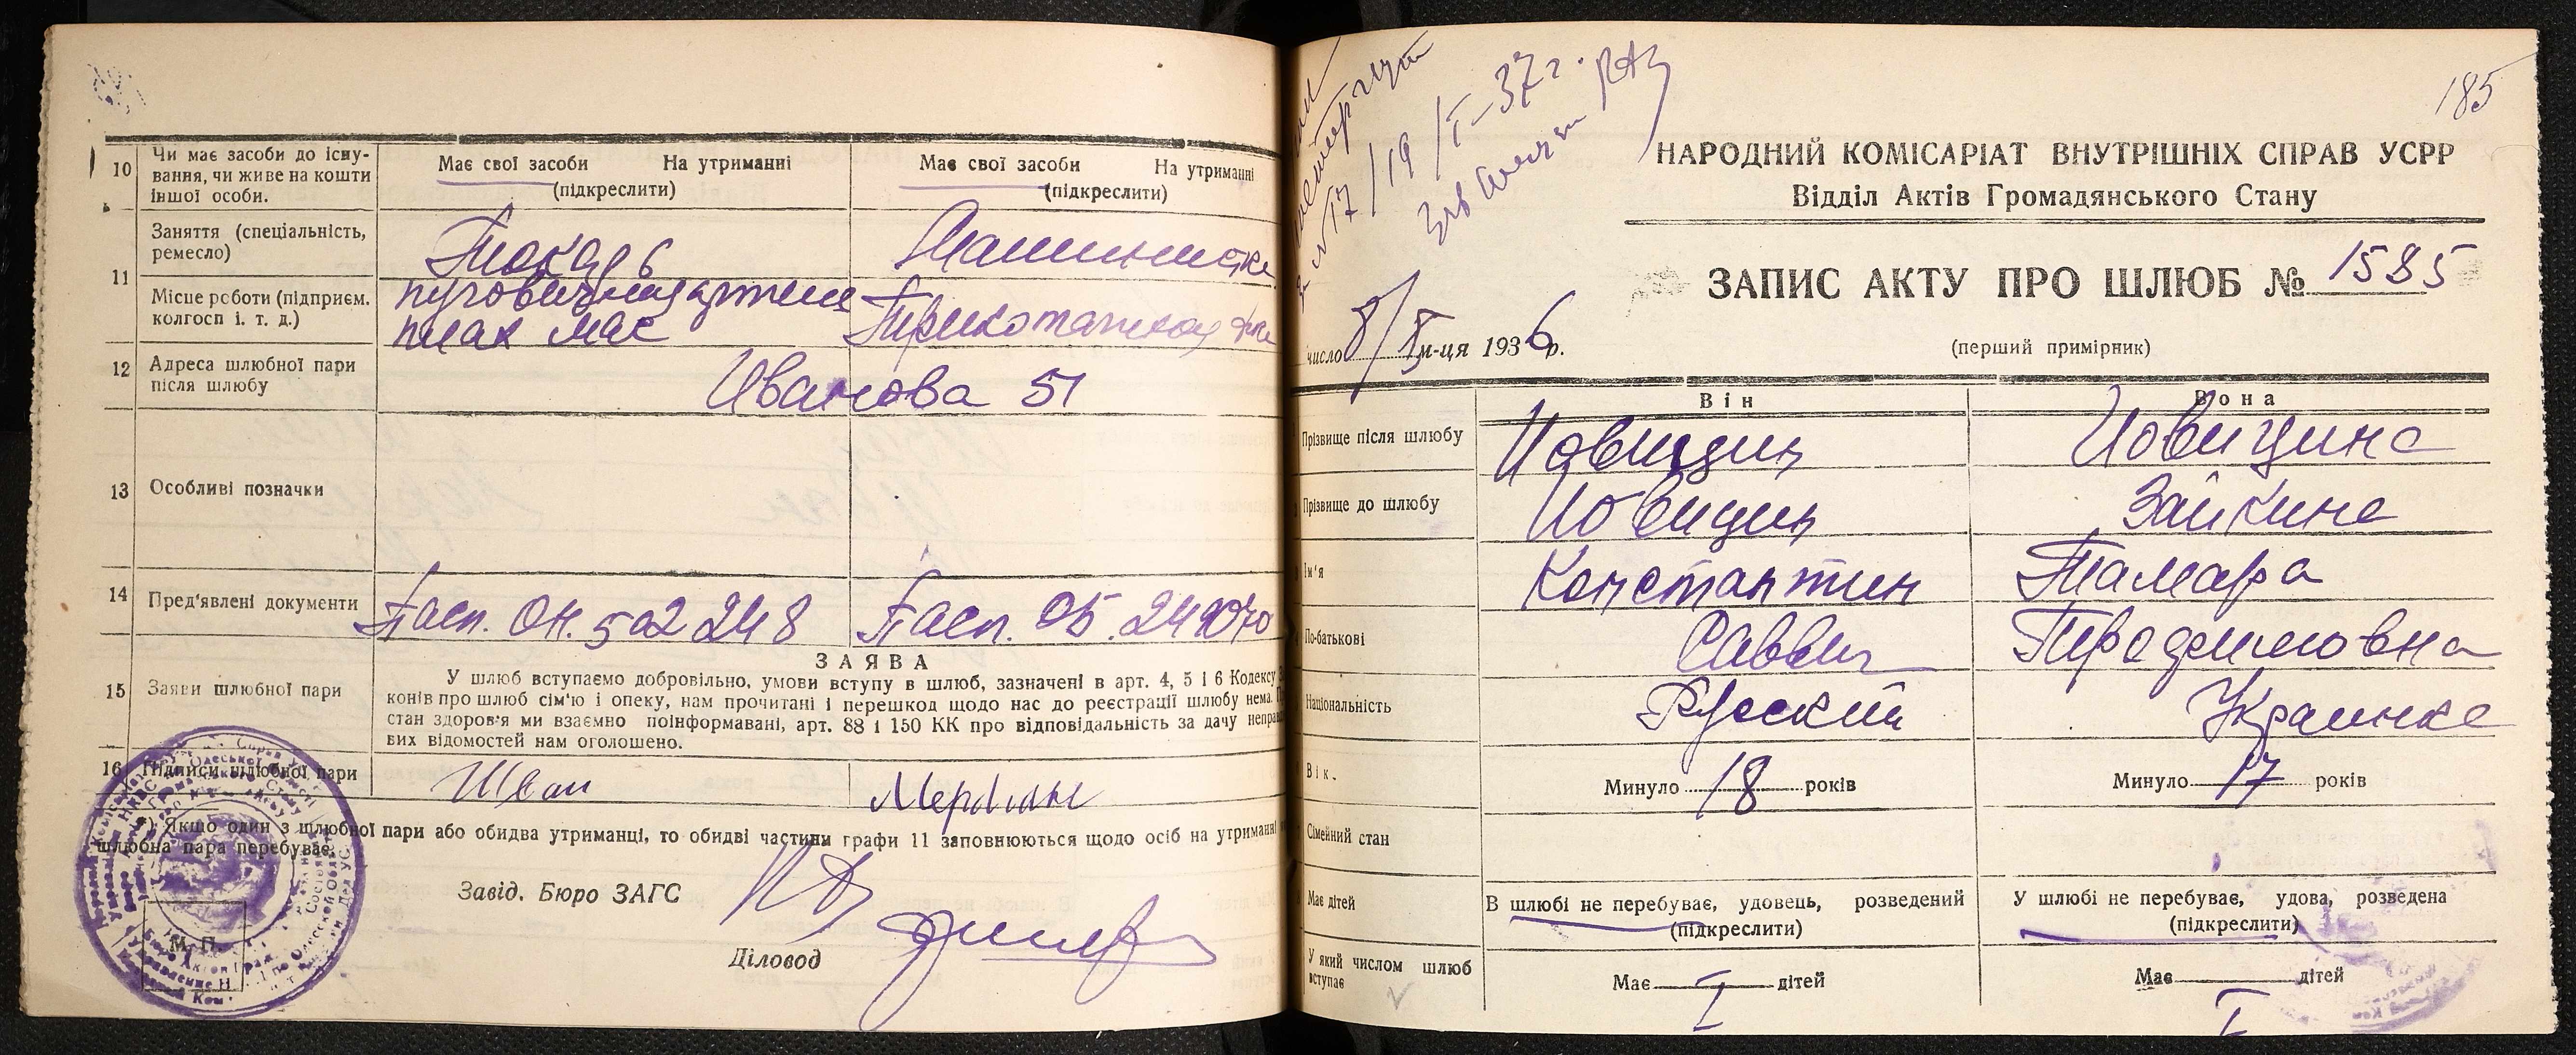 10 Чи має засоби до існу-
вання, чи живе на кошти
іншої особи.
Має свої засоби На утриманні
(підкреслити)
Має свої засоби На утриманні
(підкреслити)
11 Заняття (спеціальність,
ремесло)
Токарь
Машинистка
Місце роботи (підприєм.
колгосп і. т. д.)
пуговичная артель
Трикотажная
12 Адреса шлюбної пари
після шлюбу
Иванова 51
13 Особливі позначки
14 Пред'явлені документи
Пасп. ОН. 502248
Пасп. ОБ.
15 Заяви шлюбної пари
ЗАЯВА
У шлюб вступаємо добровільно, умови вступу в шлюб, зазначені в арт. 4, 5 і 6 Кодексу
конів про шлюб сім'ю і опеку, нам прочитані і перешкод щодо нас до реєстрації шлюбу нема.
стан здоров'я ми взаємно поінформавані, арт. 88 і 150 КК про відповідальність за дачу неправ
вих відомостей нам оголошено.
16 Підписи шлюбної пари
*) Якщо один з шлюбної пари або обидва утриманці, то обидві частини графи 11 заповнюються щодо осіб на утриманні
шлюбна пара перебуває.
Завід. Бюро ЗАГС
М. П.
Діловод
185
17/19/I-37 г.
НАРОДНИЙ КОМІСАРІАТ ВНУТРІШНІХ СПРАВ УСРР
Відділ Актів Громадянського Стану
ЗАПИС АКТУ ПРО ШЛЮБ № 1585
(перший примірник)
число 8/X м-ця 1936 р.
Він
Вона
Прізвище після шлюбу
Иовицин
Иовицина
Прізвище до шлюбу
Иовицин
Зайкина
Ім'я
Константин
Тамара
По-батькові
Саввич
Національність
Русский
Украинка
Вік.
Минуло 18 років
Минуло 17 років
Сімейний стан
Має дітей
В шлюбі не перебуває, удовець, розведений
(підкреслити)
У шлюбі не перебуває, удова, розведена
(підкреслити)
У який числом шлюб
вступає
Має дітей
I
Має дітей
I